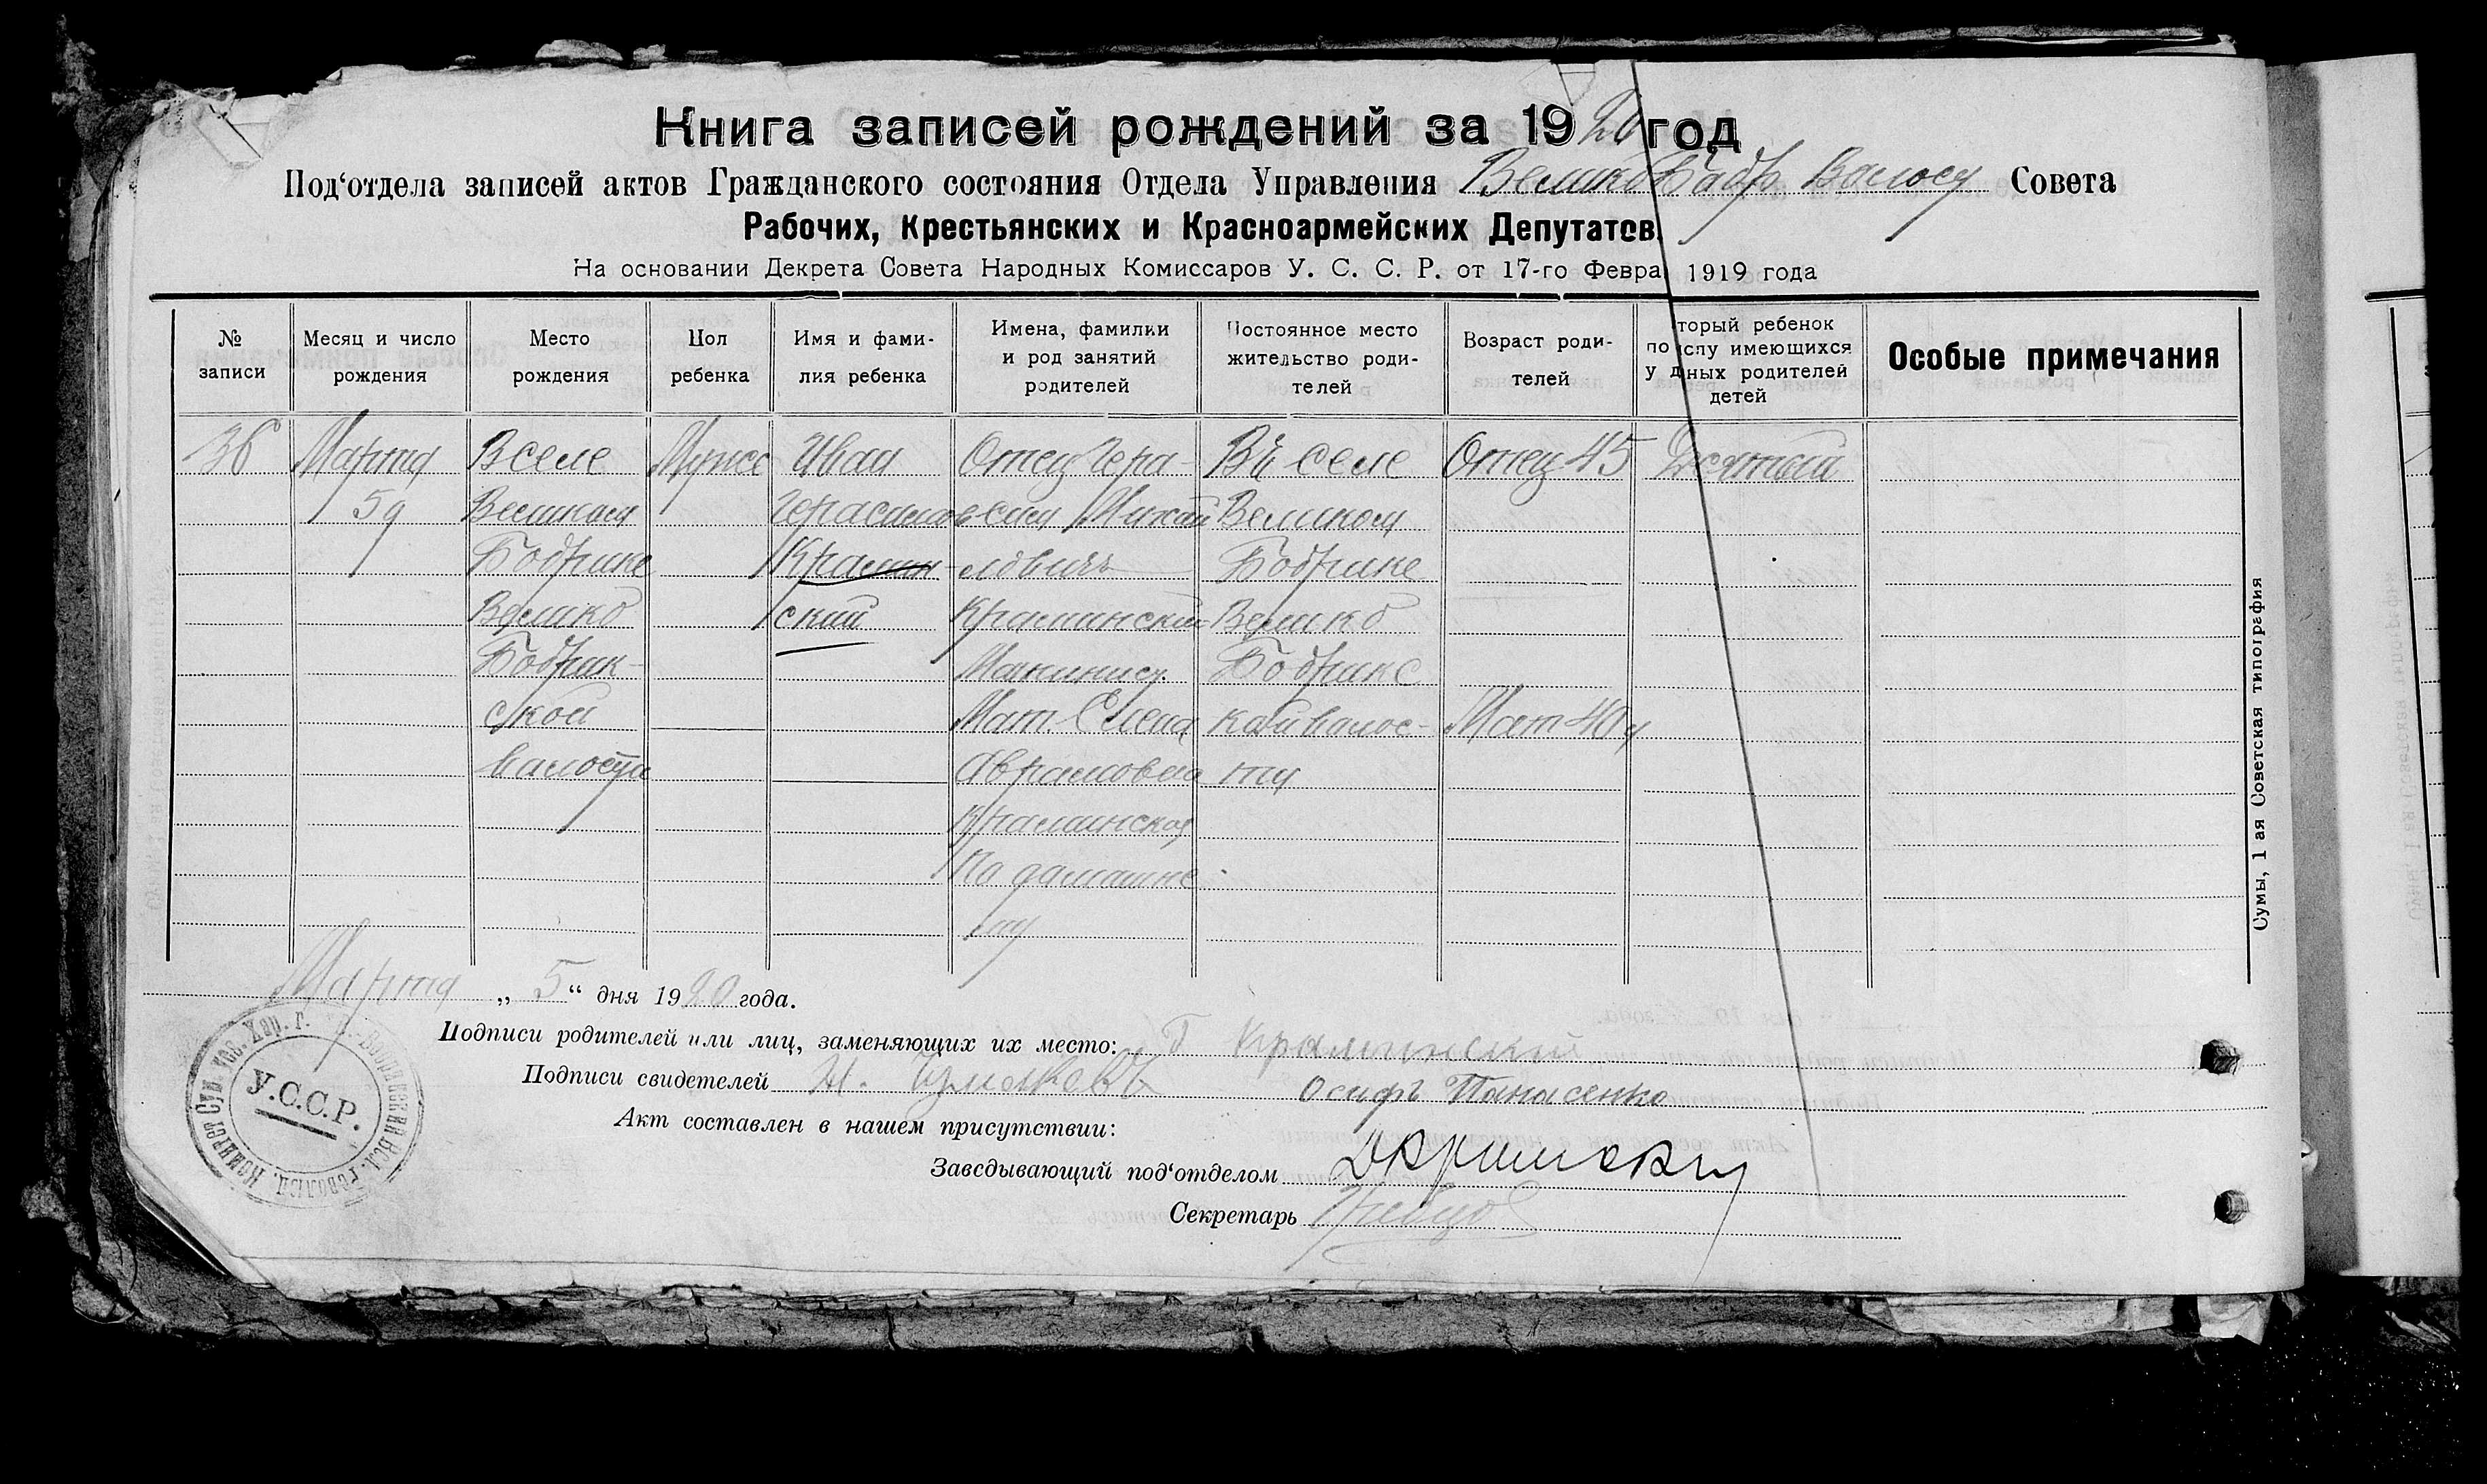 Книга записей рождений за 1920 год
Под'отдела записей актов Гражданского состояния Отдела Управления Велико Бобр. Волост Совета
Рабочих, Крестьянских и Красноармейских Депутатов.
На основании Декрета Совета Народных Комиссаров У. С. С. Р. от 17-го Февра 1919 года
№ записи
Месяц и число рождения
Место рождения
Пол ребенка
Имя и фами-
лия ребенка
Имена, фамилии
и род занятий
родителей
Постоянное место
жительство роди-
телей
Возраст роди-
телей
торый ребенок
по числу имеющихся
у данных родителей
детей
Особые примечания
36
Марта
5 д
В селе
Великом
Бобрике
Велико
Бобрик-
ской
валости
Мужс
Иван
Герасимов
Крамин
ский
Отец Гера-
сим Михай
лович
Краминский
Машинист
Мат. Елена
Аврамовна
Краминская
По дамашне
му
Въ селе
Великом
Бобрике
Велико
Бобрикс
кой валос-
ти
Отец 45
Мат 40
Десятый
Марта „ 5 “ дня 1920 года.
Подписи родителей или лиц, заменяющих их место: Г Краминский
Подписи свидетелей
Осифъ Панасенко
Акт составлен в нашем присутствии:
Заведывающий под'отделом
Секретарь
У.С.С.Р.
Сумы, 1 ая Советская типография